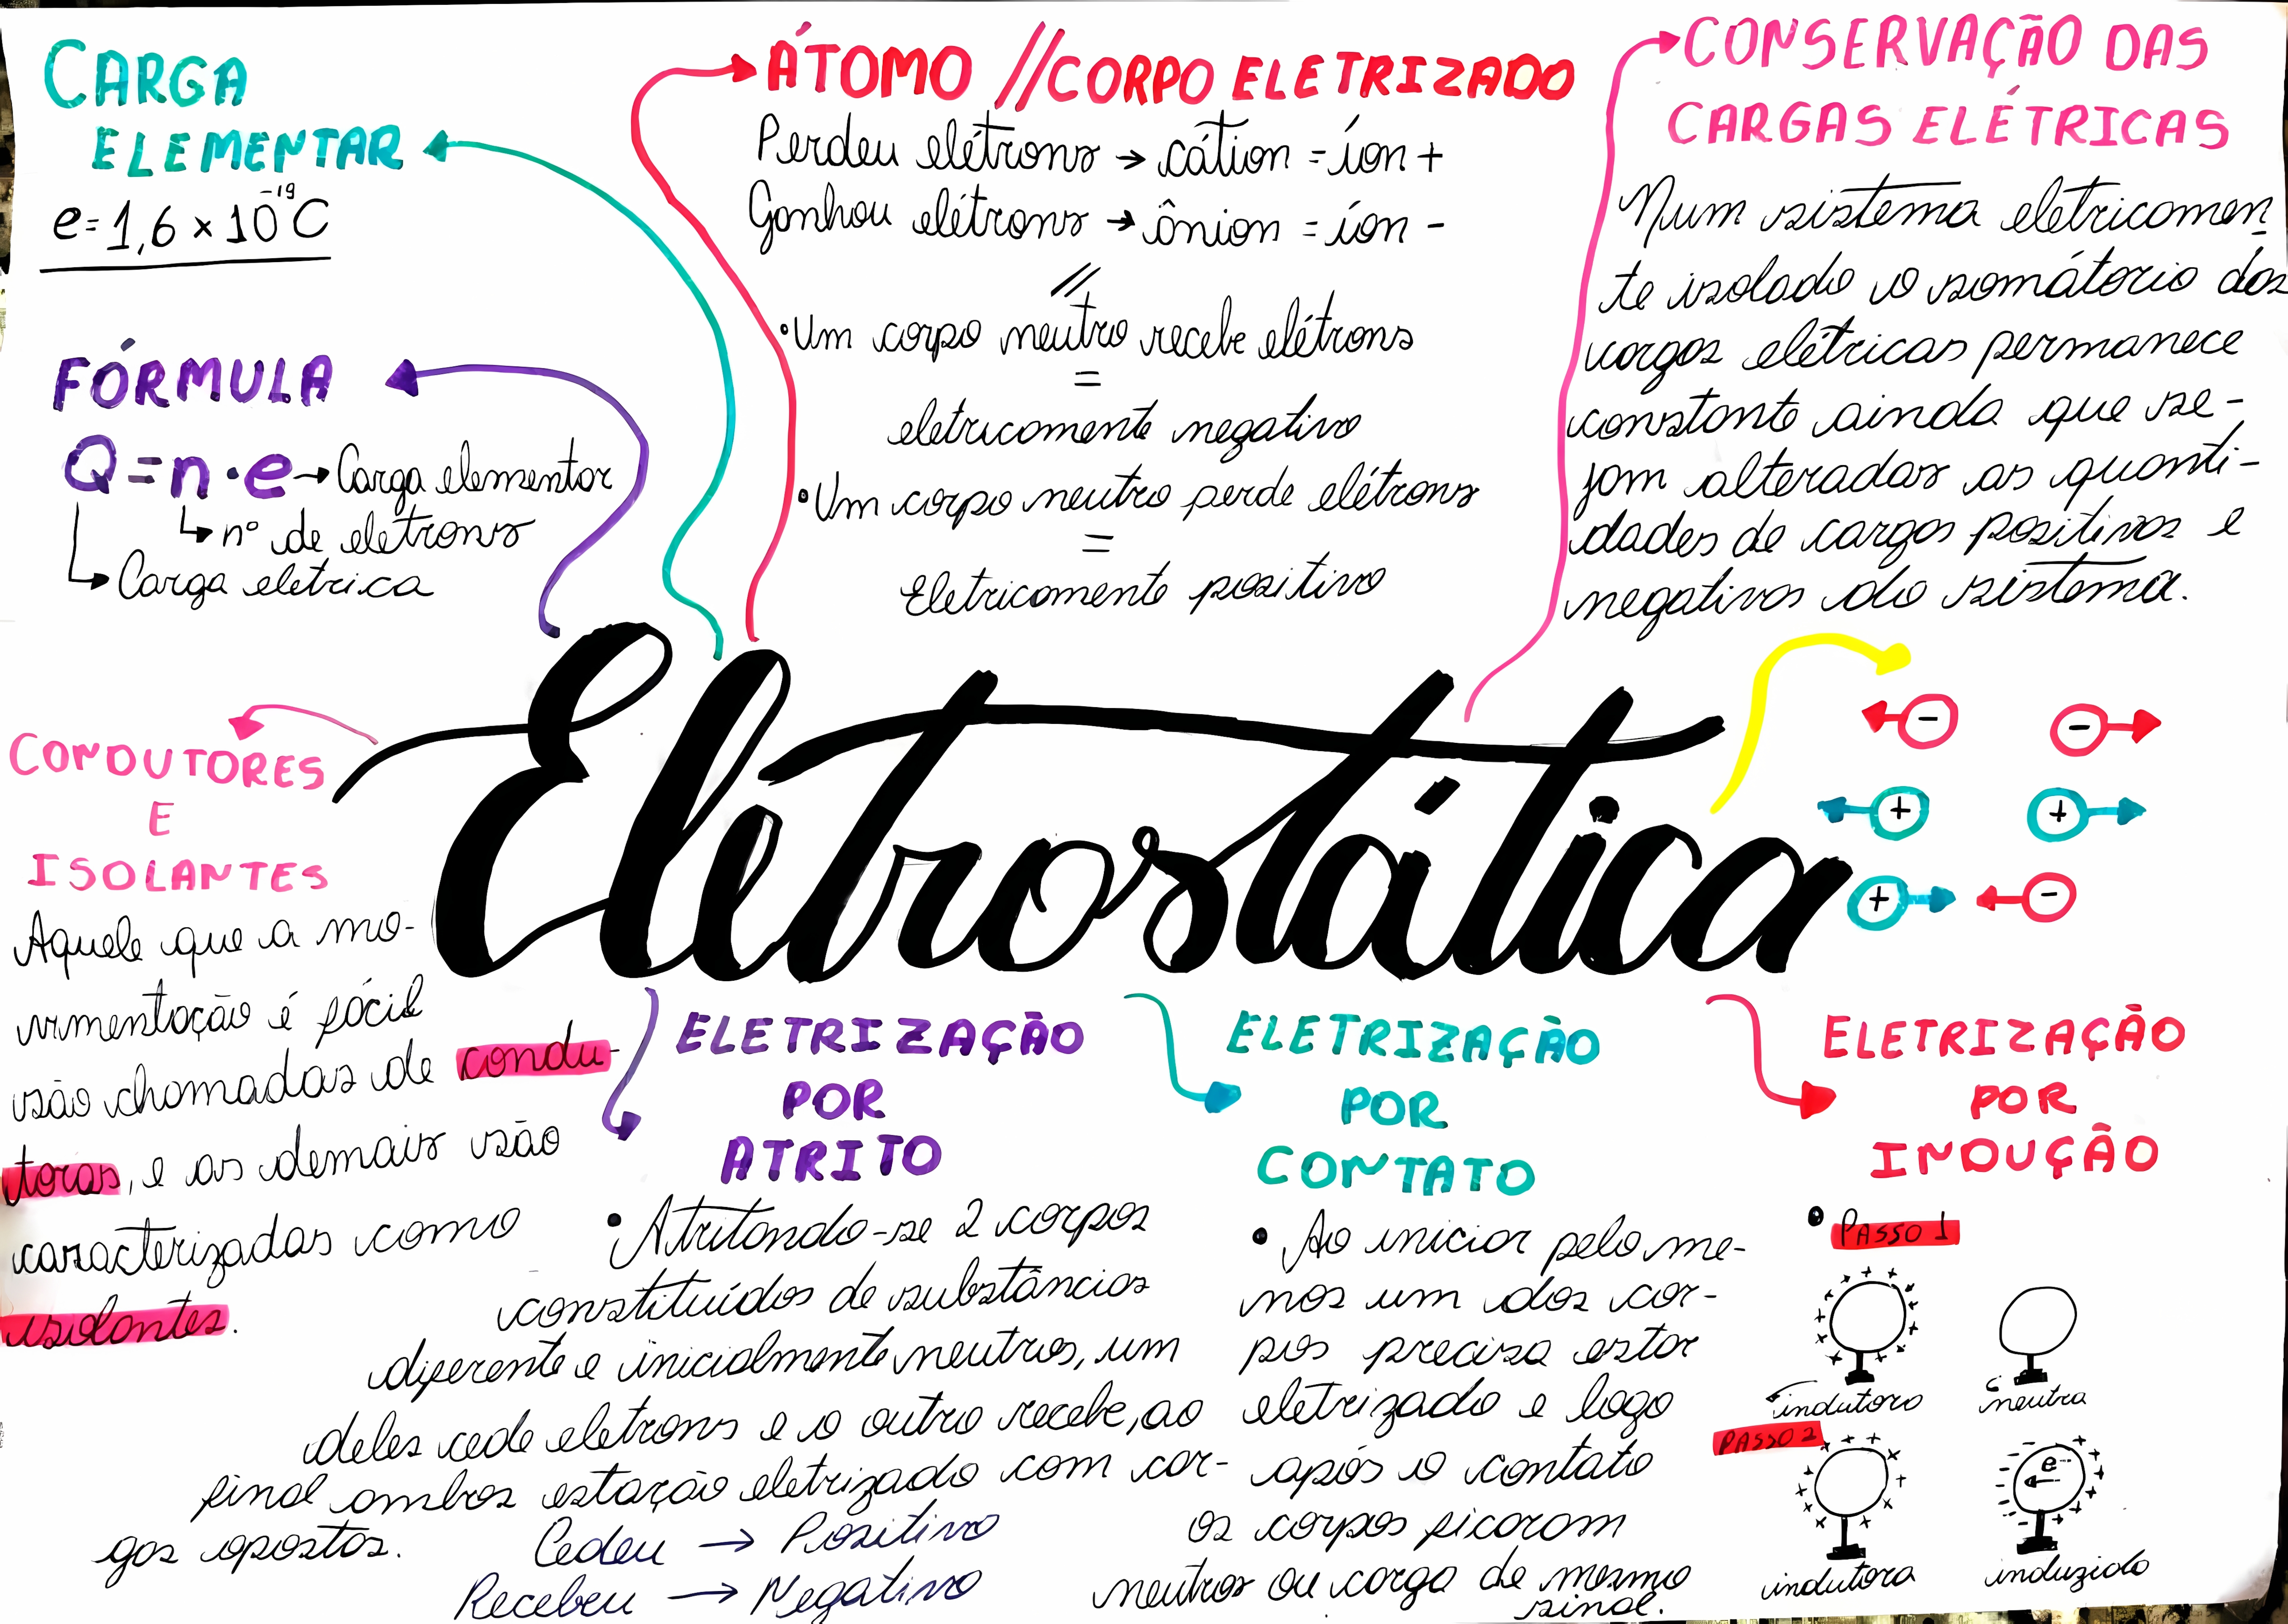 CARGA
ELEMENTAR
e=1,6 x 10⁻¹⁹C
FÓRMULA
Q=n·e→Carga elementar
↳nº de eletrons
↳Carga eletrica
ÁTOMO // CORPO ELETRIZADO
Perdeu elétrons → cátion = íon +
Ganhou elétrons → ânion = íon -
//
•Um corpo neutro recebe elétrons
=
eletricamente negativo
•Um corpo neutro perde elétrons
=
Eletricamente positivo
CONSERVAÇÃO DAS
CARGAS ELÉTRICAS
Num sistema eletricamen-
te isolado o somátorio das
cargas elétricas permanece
constante ainda que se-
jam alteradas as quanti-
dades de cargas positivas e
negativas do sistema.
Eletrostática
- -
+ +
+ -
CONDUTORES
E
ISOLANTES
Aquele que a mo-
vimentação é fácil
são chamadas de condu-
toras, e as demais são
caracterizadas como
isolantes.
ELETRIZAÇÃO
POR
ATRITO
• Atritando-se 2 corpos
constituídos de substâncias
diferente e inicialmente neutros, um
deles cede eletrons e o outro recebe, ao
final ambos estação eletrizado com car-
gas opostas.
Cedeu → Positivo
Recebeu → Negativo
ELETRIZAÇÃO
POR
CONTATO
• Ao iniciar pelo me-
nos um dos cor-
pos precisa estar
eletrizado e logo
após o contato
os corpos ficaram
neutros ou carga de mesmo
sinal.
ELETRIZAÇÃO
POR
INDUÇÃO
• PASSO 1
indutora neutra
PASSO 2
e-
indutora induzido